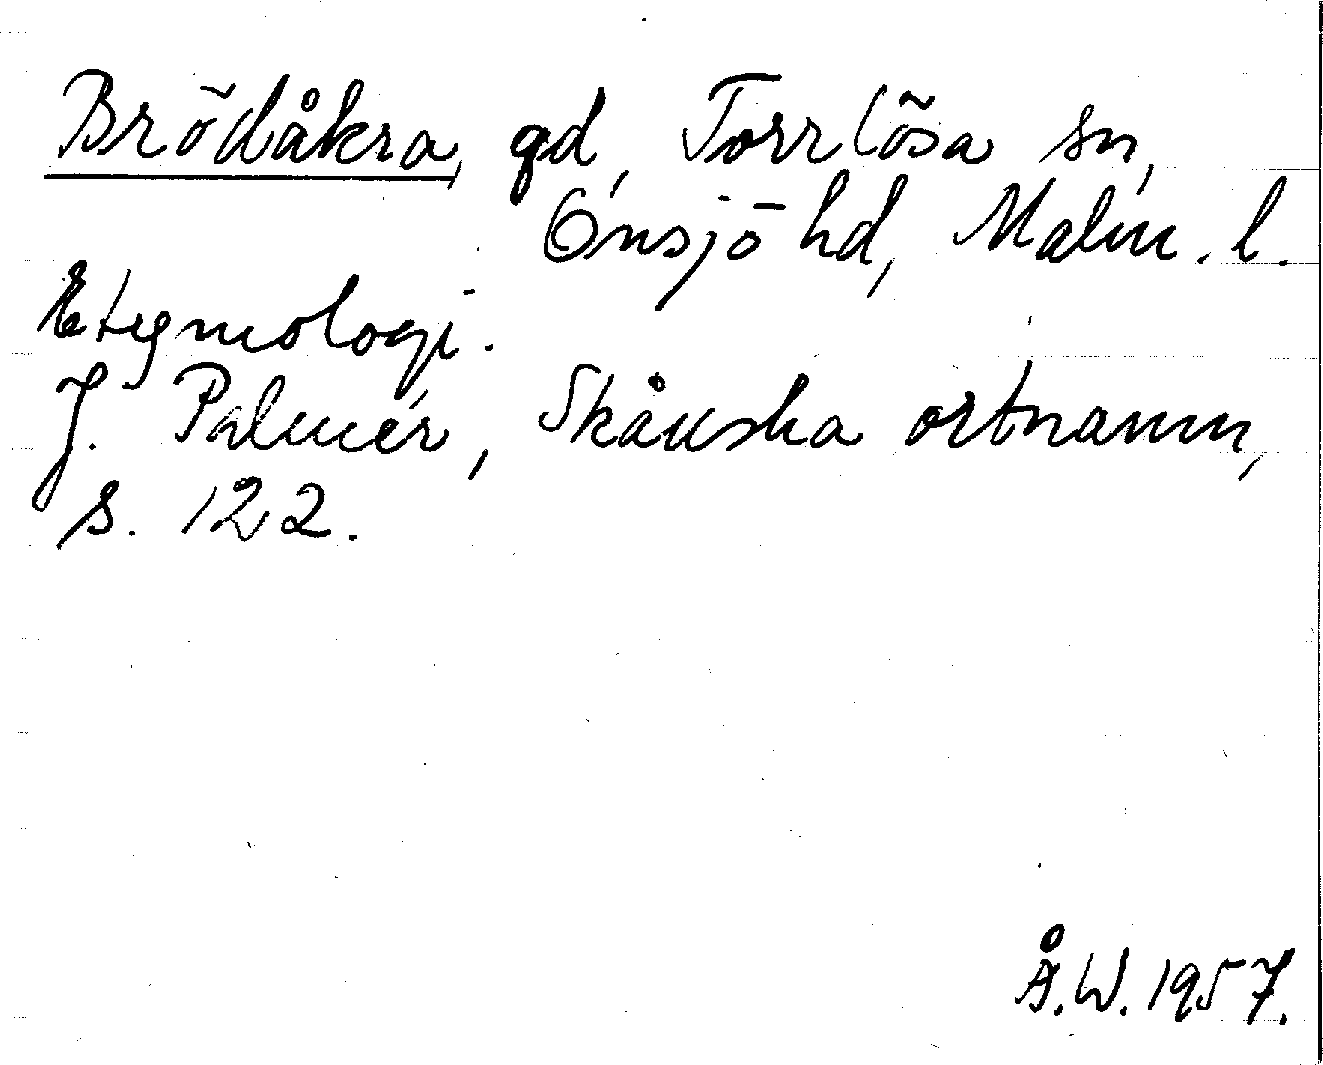 Brödåkra, gd, Torrlösa sn,
Onsjö hd, Malm. l.
Etymologi.
J. Palmér, Skånska ortnamn,
s. 122.
Å.W. 1957.